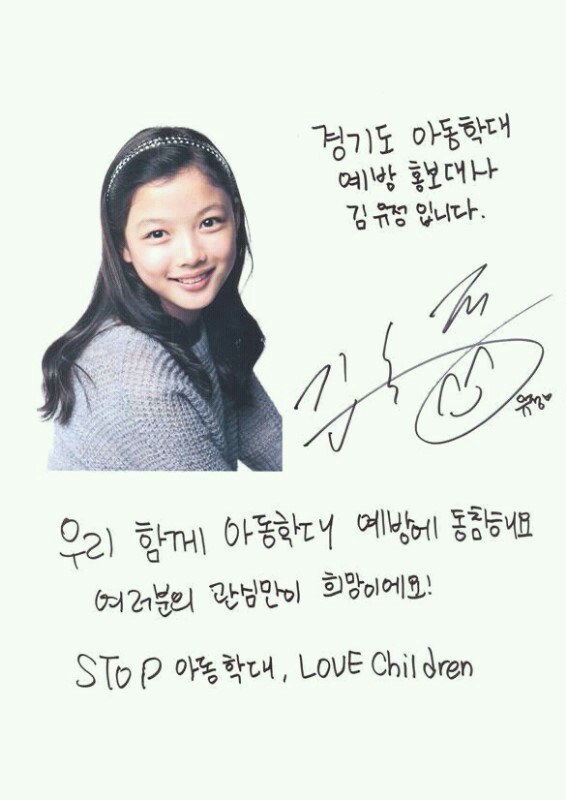 경기도 아동학대
예방 홍보대사
김유정 입니다.
유정♥
우리 함께 아동학대 예방에 동참해요
여러분의 관심만이 희망이에요!
STOP 아동학대, LOVE Children